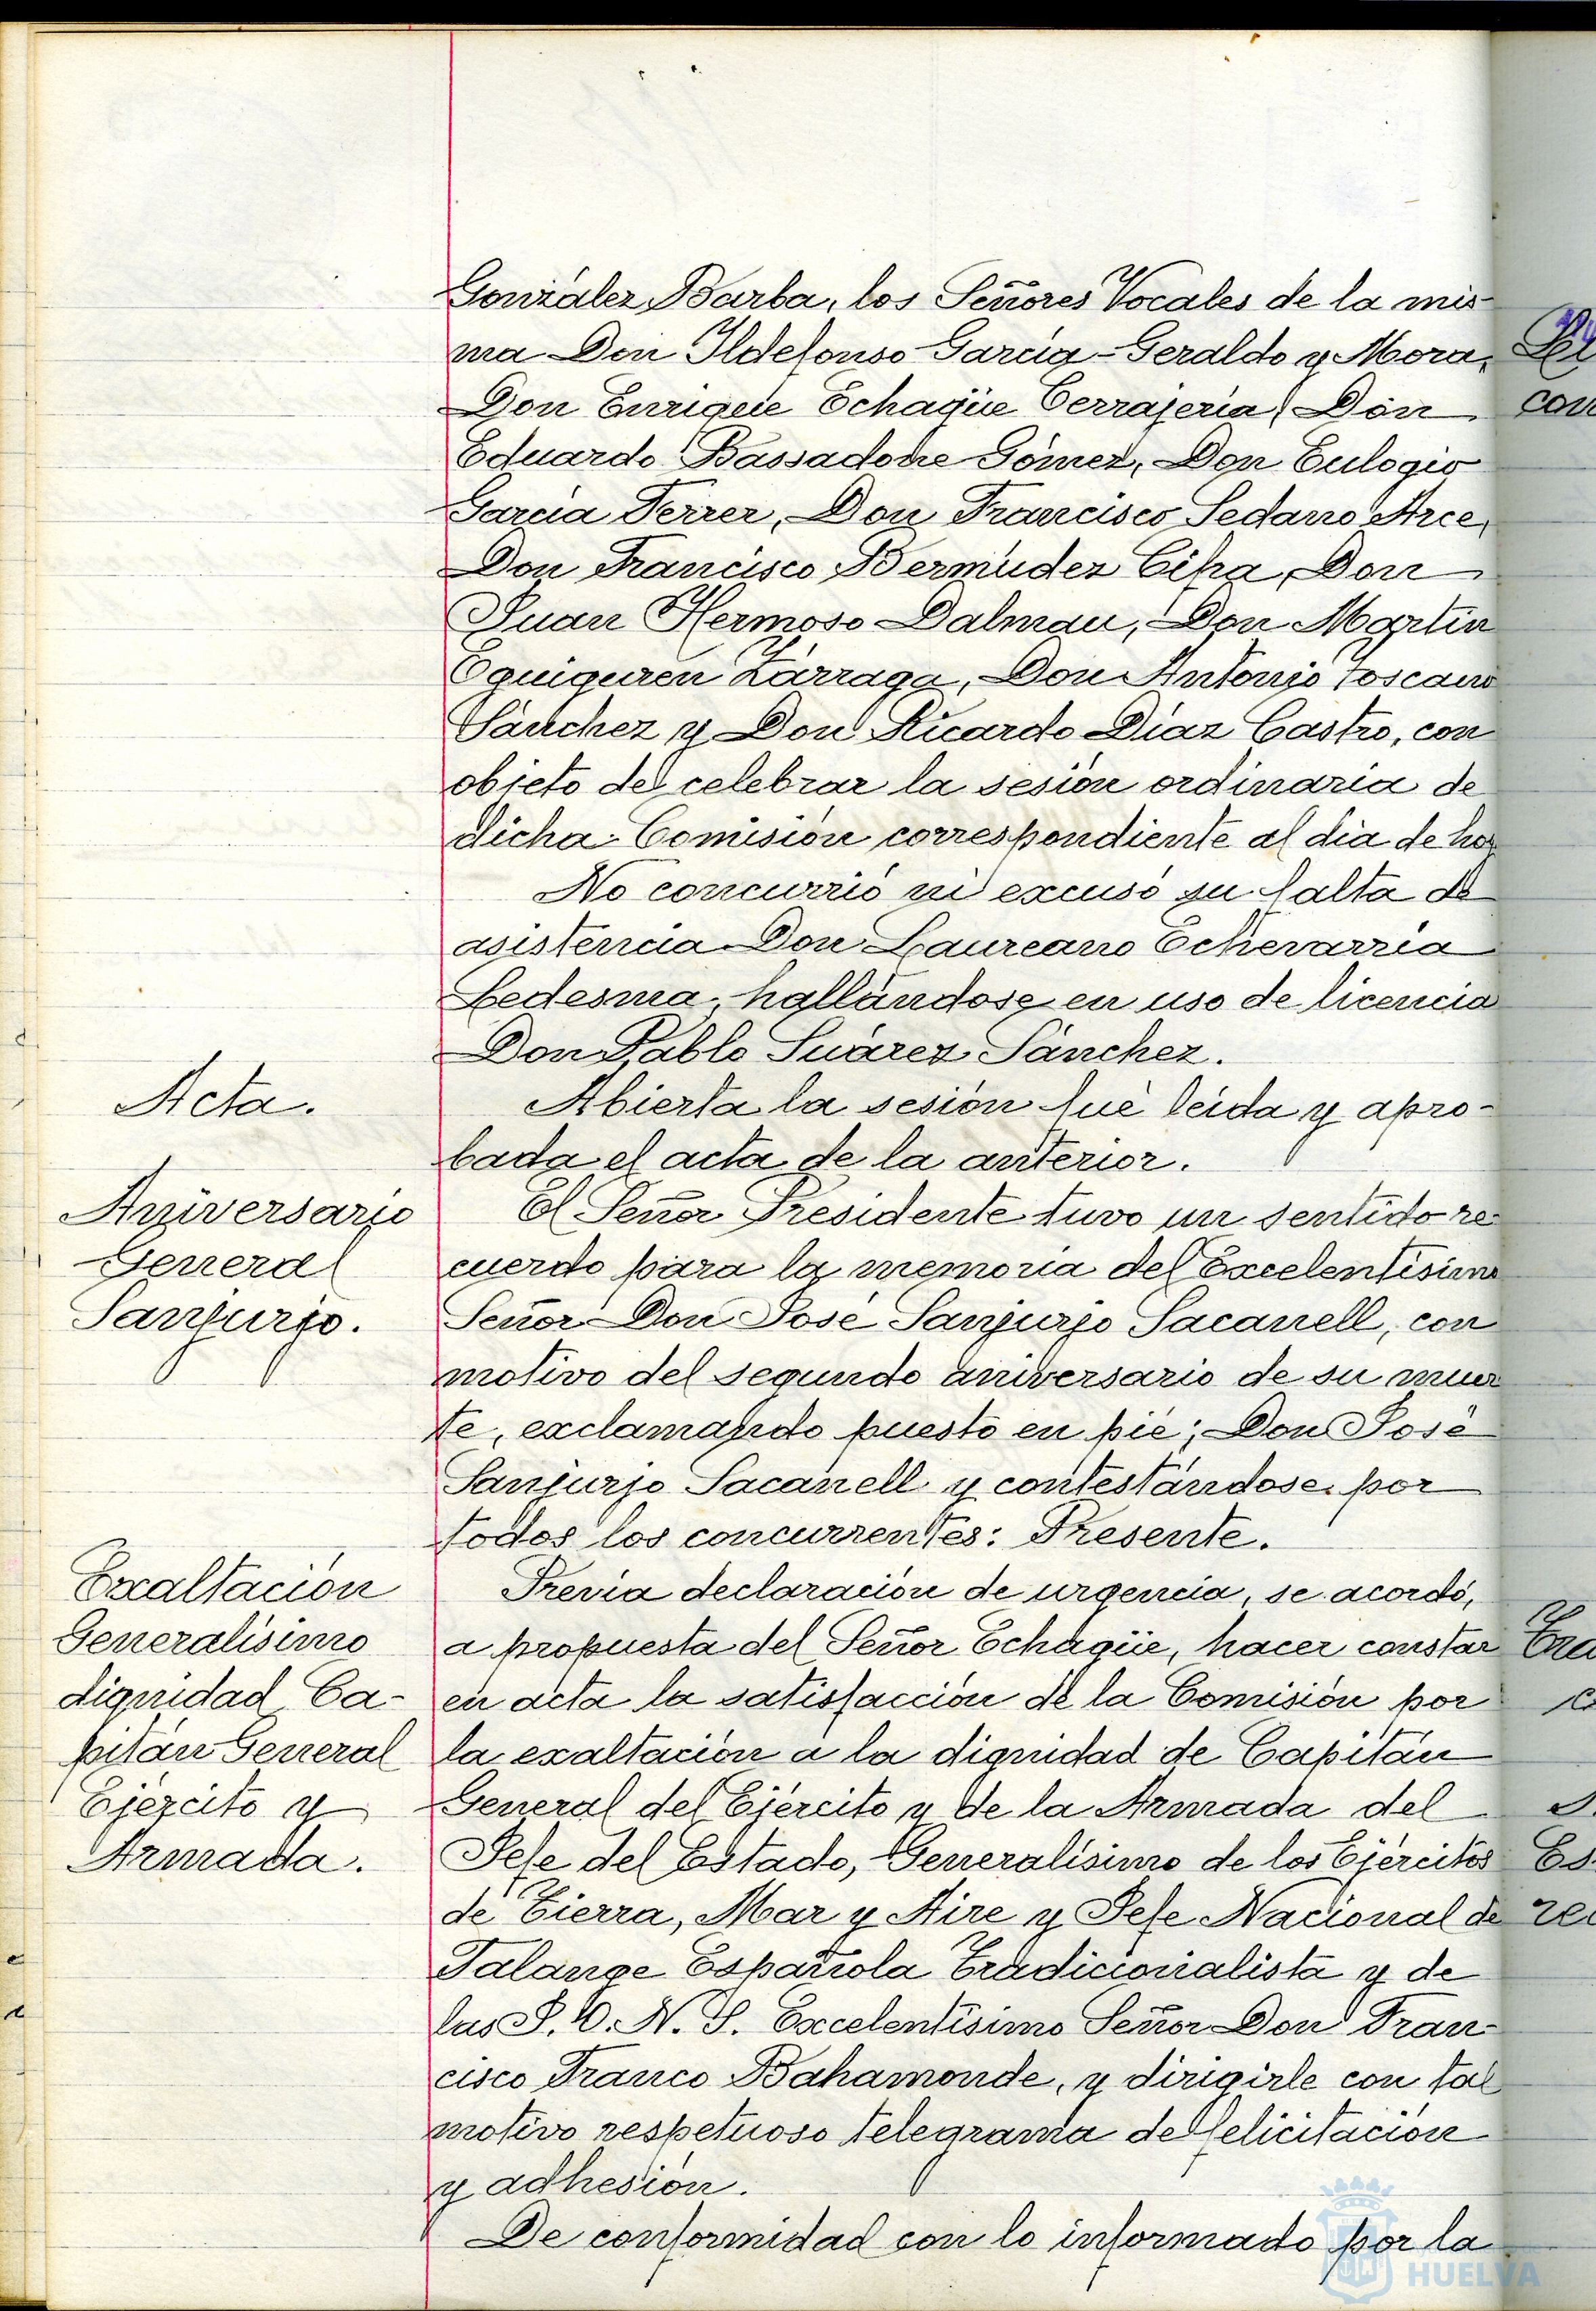 González Barba, los Señores Vocales de la mis-
ma Don Ildefonso García-Geraldo y Mora,
Don Enrique Echagüe Cerrajería, Don
Eduardo Bassadone Gómez, Don Eulogio
García Ferrer, Don Francisco Sedano Arce,
Don Francisco Bermúdez Cifra, Don
Juan Hermoso Dalmau, Don Martín
Eguiguren Zárraga, Don Antonio Toscano
Sánchez y Don Ricardo Díaz Castro, con
objeto de celebrar la sesión ordinaria de
dicha Comisión correspondiente al día de hoy
No concurrió ni excusó su falta de
asistencia Don Laureano Echevarría
Ledesma, hallándose en uso de licencia
Don Pablo Suárez Sánchez.
Acta.
Abierta la sesión fué leída y apro-
bada el acta de la anterior.
Aniversario
General
Sanjurjo.
El Señor Presidente tuvo un sentido re-
cuerdo para la memoria del Excelentísimo
Señor Don José Sanjurjo Sacanell, con
motivo del segundo aniversario de su muer
te, exclamando puesto en pié; Don José
Sanjurjo Sacanell y contestándose por
todos los concurrentes: Presente.
Exaltación
Generalísimo
dignidad Ca-
pitán General
Ejército y
Armada.
Previa declaración de urgencia, se acordó,
a propuesta del Señor Echagüe, hacer constar
en acta la satisfacción de la Comisión por
la exaltación a la dignidad de Capitán
General del Ejército y de la Armada del
Jefe del Estado, Generalísimo de los Ejércitos
de Tierra, Mar y Aire y Jefe Nacional de
Falange Española Tradicionalista y de
las J.O.N.S. Excelentísimo Señor Don Fran-
cisco Franco Bahamonde, y dirigirle con tal
motivo respetuoso telegrama de felicitación
y adhesión.
De conformidad con lo informado por la
HUELVA